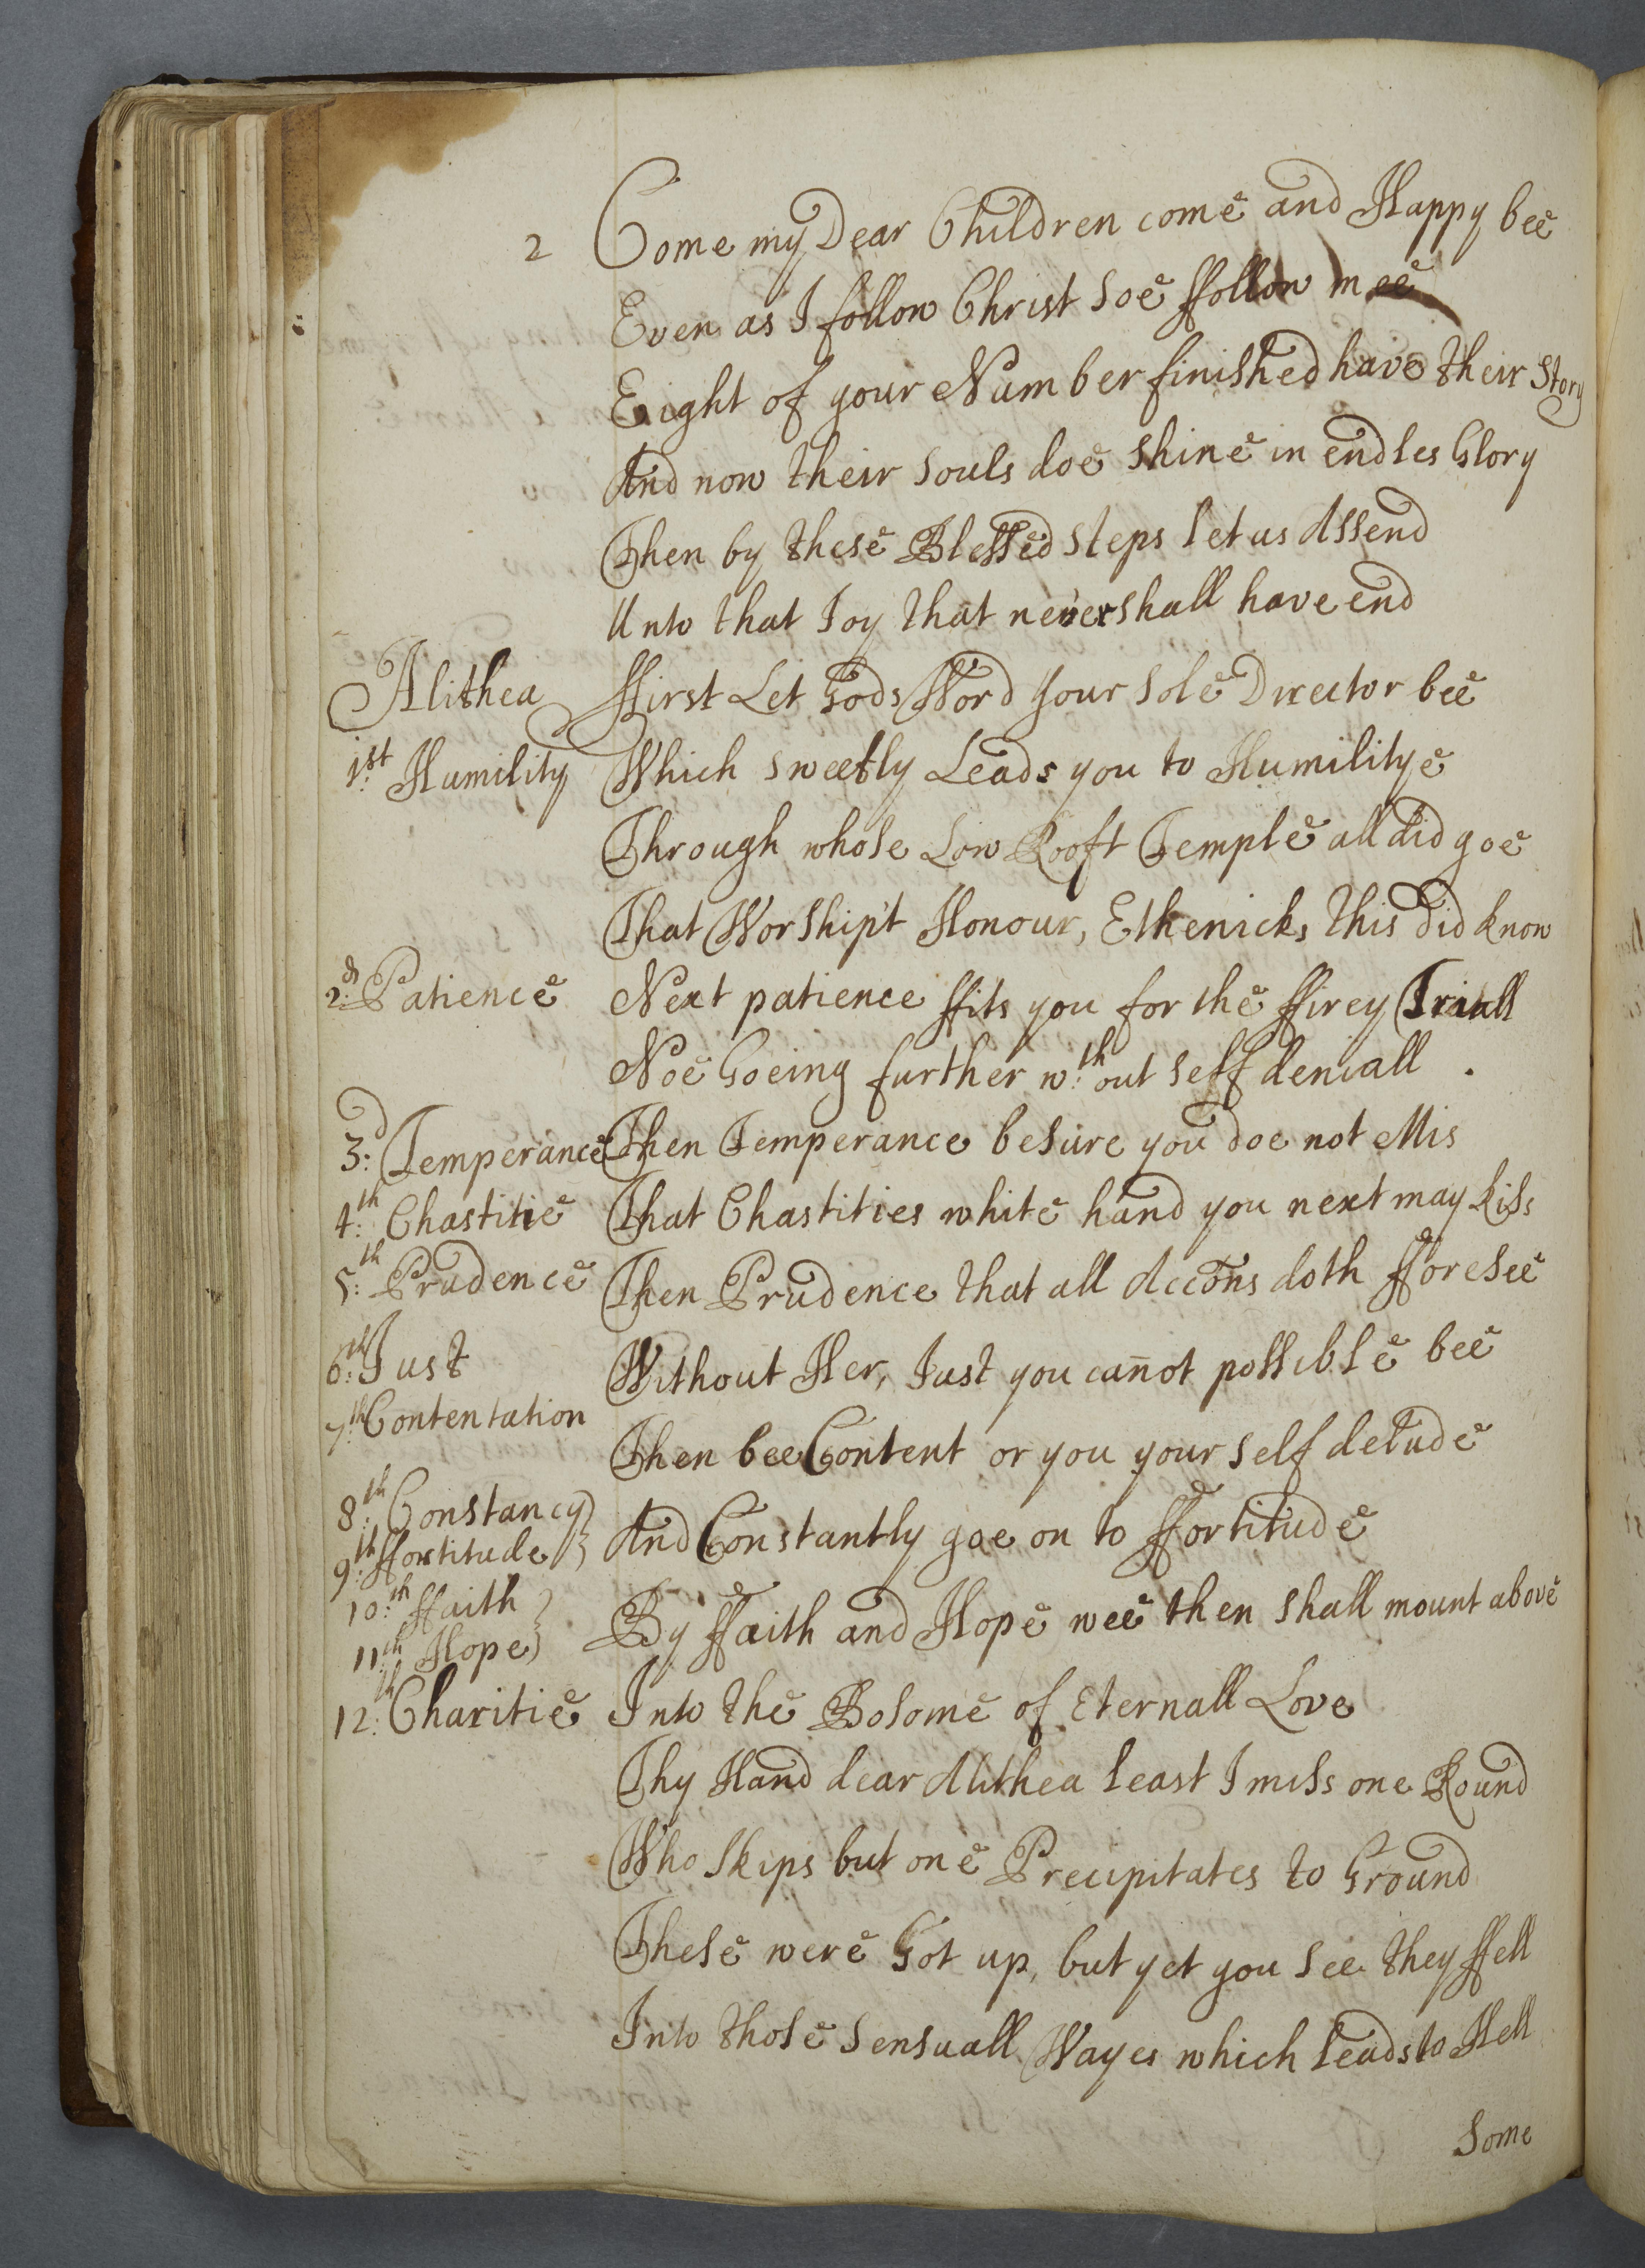 2 Come my Dear Children come and Happy bee
Even as I follow Christ soe ffollow mee
Eight of your Number finished have their Story
And now their souls doe shine in endles Glory
Then by these Blessed steps let us Assend
Unto that Joy that never shall have end
Alithea ffirst Let Gods Word Your sole Director bee
1:st Humility Which sweetly Leads you to Humilitye
Through whose Low Rooft Temple all did goe
That Worship't Honour, Ethenicks this did know
2:d Patience Next patience ffits you for the ffirey Triall
Noe Goeing further w:th out self deniall .
3:d Temperance Then Temperance besure you doe not Mis
4:th Chastitie That Chastities white hand you next may kiss
5:th Prudence Then Prudence that all Accōns doth fforesee
6:th Just Without Her, Just you can̄ot possible bee
7:th Contentation Then bee Content or you your self delude
8:th Constancy } And Constantly goe on to ffortitude
9:th ffortitude }
10:th ffaith } By ffaith and Hope wee then shall mount above
11:th Hope }
12:th Charitie Into the Bosome of Eternall Love
Thy Hand dear Alithea least I miss one Round
Who skips but one Precipitates to Ground
These were Got up, but yet you see they ffell
Into those sensuall Wayes which leads to Hell
Some